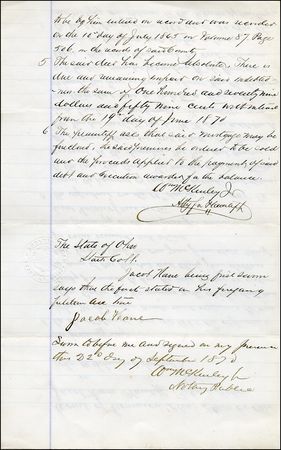 to be by him entered on record and was recorded
on the 10th day of July 1865 in Volume 87 Page
506 in the records of said county
5 The said deed has become absolute. There is
due and remaining unpaid on said indebted-
ness the sum of One Hundred and seventy nine
dollars and fifty nine cents with interest
from the 19th day of June 1870
6 The plaintiff asks that said mortgage may be
foreclosed, the said premises be ordered to be sold
and the proceeds applied to the payment of said
debt and execution awarded for the balance.
Wm McKinley Jr
Atty for Plaintiff
The State of Ohio
Stark Co SS.
Jacob Kane being first sworn
says that the facts stated in his foregoing
petition are true
Jacob Kane
Sworn to before me and signed in my presence
this 22d day of September 1870
Wm McKinley Jr
Notary Public